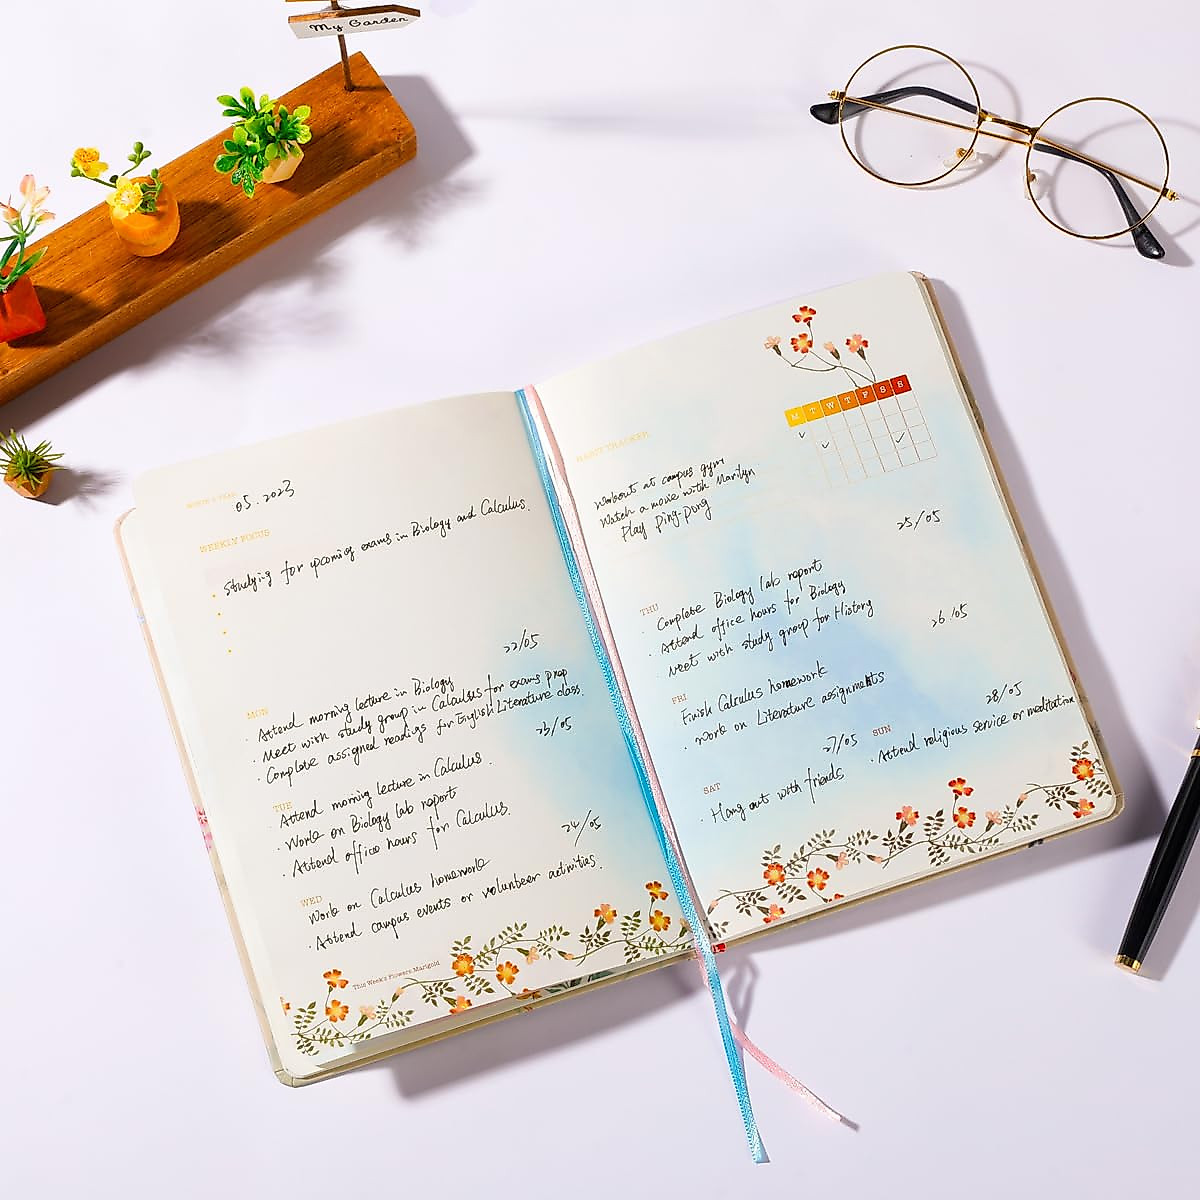 My Garden
MONTH & YEAR
05.2023
WEEKLY FOCUS
Studying for upcoming exams in Biology and Calculus.
22/05
MON
· Attend morning lecture in Biology
· Meet with study group in Calculus for exams prep
· Complete assigned readings for English Literature class.
23/05
TUE
· Attend morning lecture in Calculus.
· Work on Biology lab report
· Attend office hours for Calculus.
24/05
WED
· Work on Calculus homework
· Attend campus events or volunteer activities.
This Week's Flowers: Marigold
M T W T F S S
HABIT TRACKER
Workout at campus gym
Watch a movie with Marilyn
Play ping-pong
25/05
THU
· Complete Biology lab report
· Attend office hours for Biology
· Meet with study group for History
26/05
FRI
· Finish Calculus homework
· Work on Literature assignments
27/05
SAT
· Hang out with friends
28/05
SUN
· Attend religious service or meditation